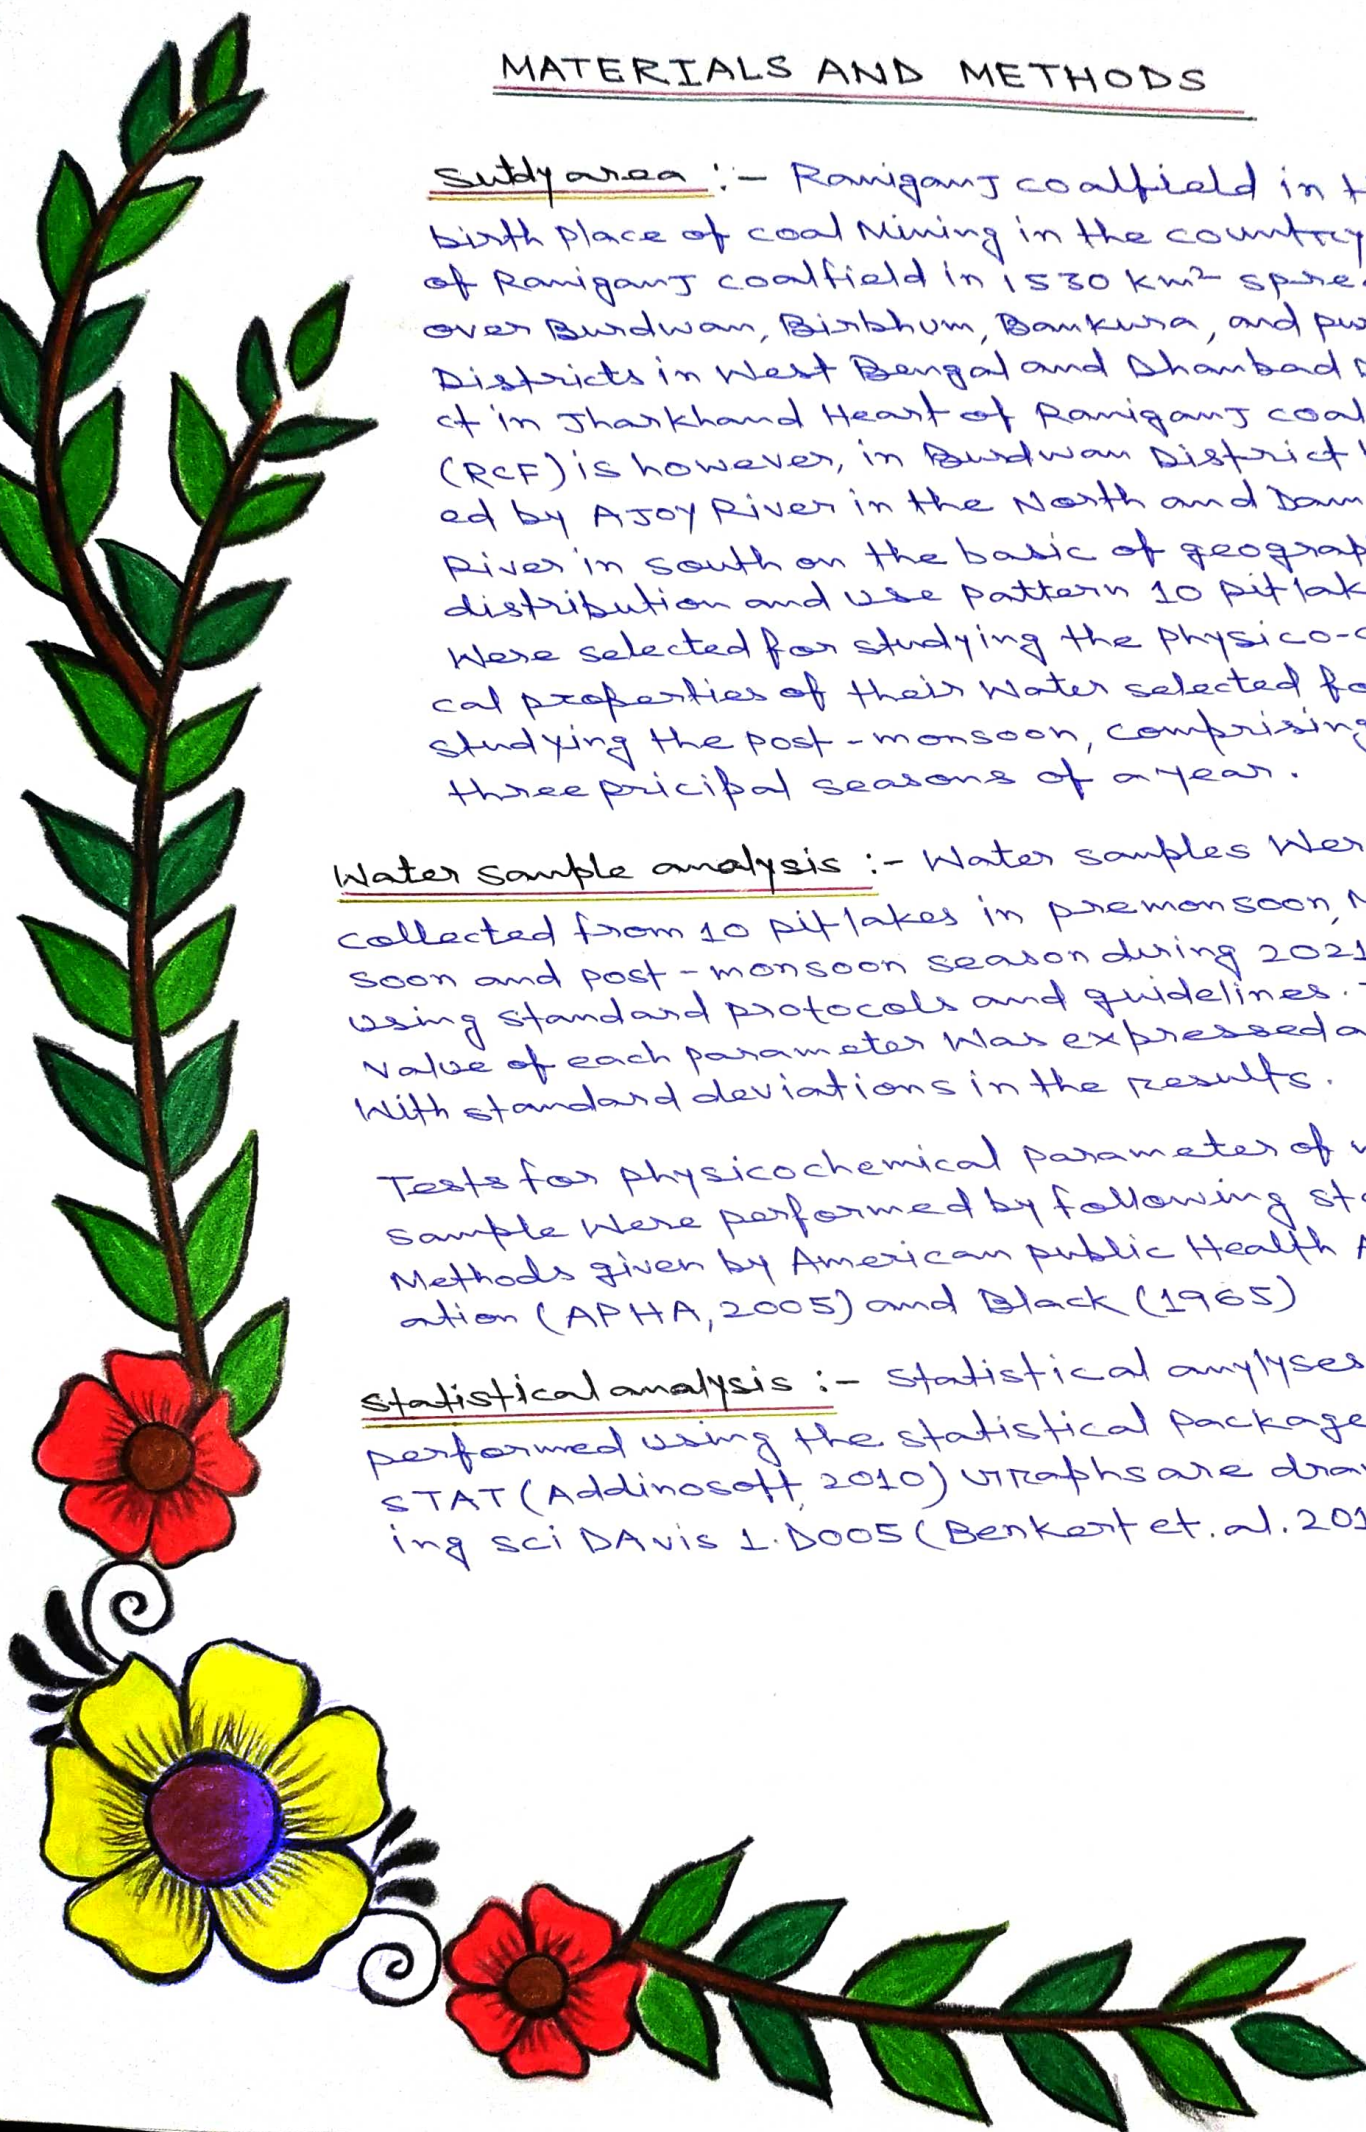 MATERIALS AND METHODS
Sutdy area :- Raniganj coalfield in t
birth place of coal Mining in the country
of Raniganj coalfield in 1530 km² spre
over Burdwan, Birbhum, Bankura, and pu
Districts in West Bengal and Dhanbad D
ct in Jharkhand Heart of Raniganj coal
(RCF) is however, in Burdwan District
ed by AJOY River in the North and Dam
River in south on the basic of geograp
distribution and use pattern 10 pit lak
Were selected for studying the physico-c
cal properties of their Water selected fo
studying the post-monsoon, comprising
three pricipal seasons of a year.
Water sample analysis :- Water samples Wer
collected from 10 pit lakes in premonsoon, M
soon and post-monsoon season during 2021
using standard protocols and guidelines.
Value of each parameter Was expressed a
With standard deviations in the results.
Tests for physicochemical parameter of w
sample Were performed by following sta
Methods given by American public Health A
ation (APHA, 2005) and Black (1965)
Statistical analysis :- Statistical anylyses
performed using the statistical package
STAT (Addinosoft, 2010) graphs are dra
ing sci DAvis 1.D005 (Benkert et. al. 201